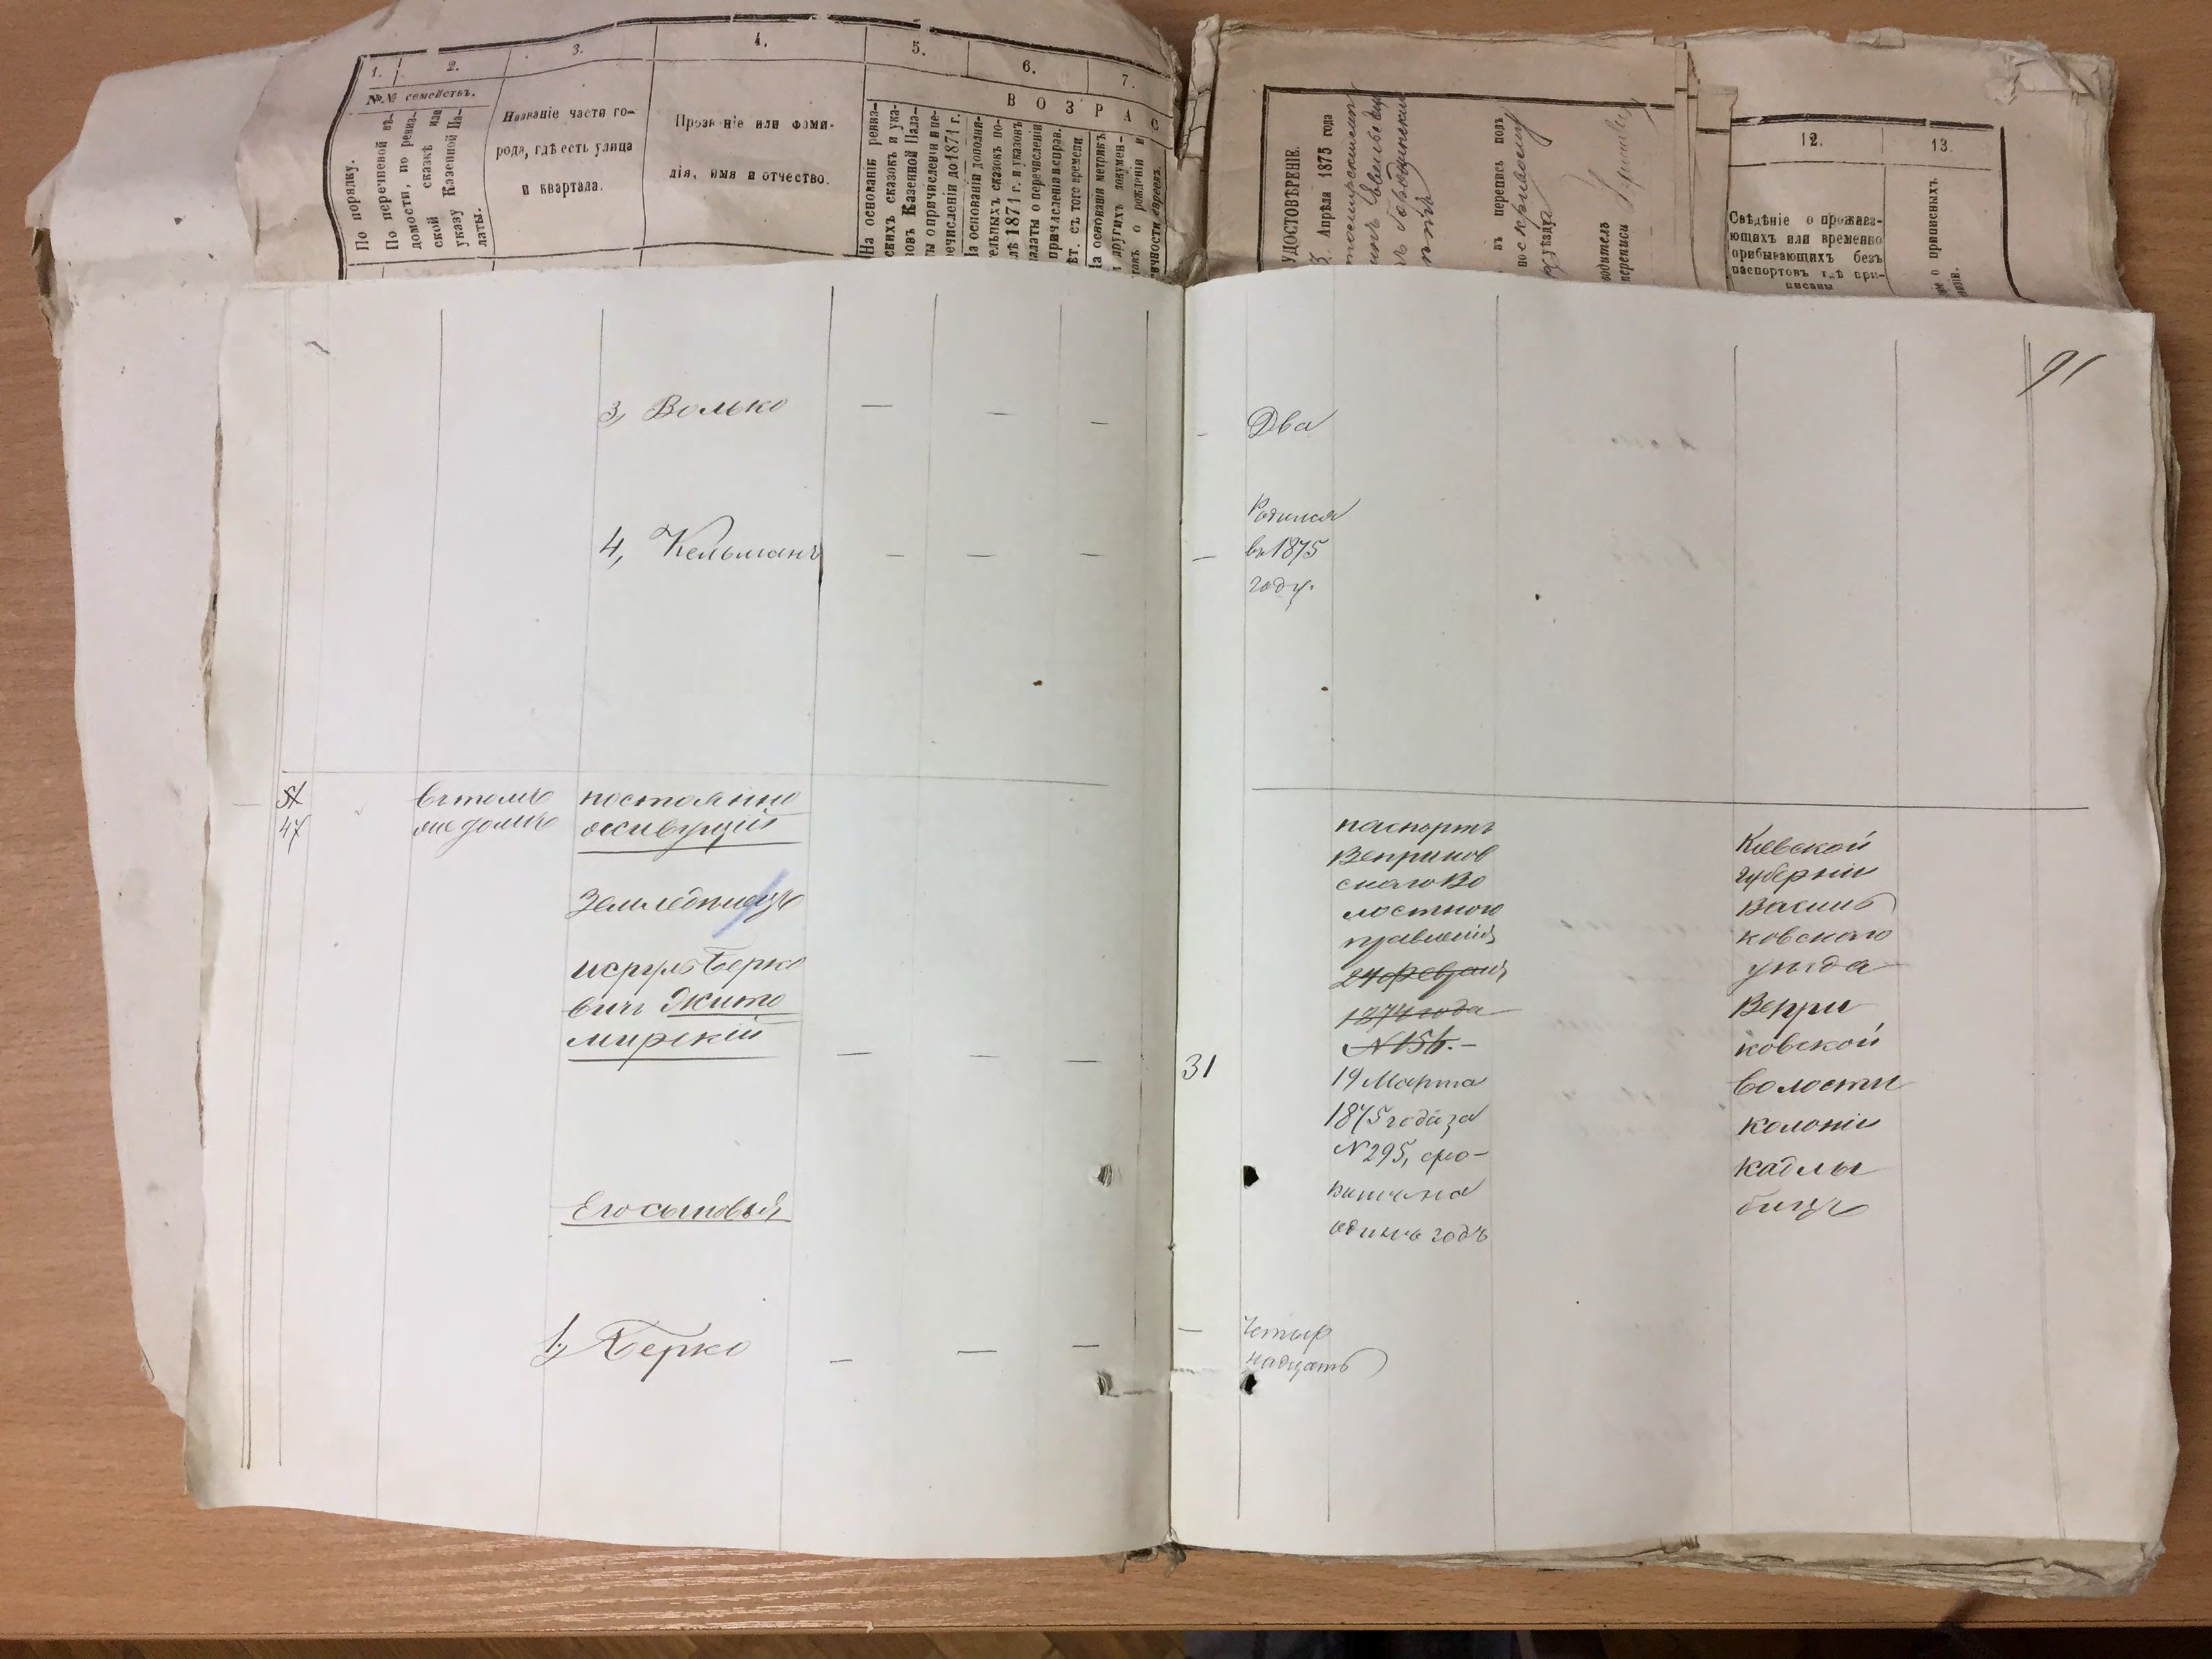 1.
2.
3.
4.
5.
6.
7.
№№ семействъ.
ВОЗРАС
По порядку.
По перечневой вѣ-
домости, по ревиз-
ской сказкѣ или
указу Казенной Па-
латы.
Названіе части го-
рода, гдѣ есть улица
и квартала.
Прозваніе или фами-
лія, имя и отчество.
На основаніи ревиз-
скихъ сказокъ и ука-
зовъ Казенной Пала-
ты о причисленіи и пе-
речисленіи до 1871 г.
На основаніи дополни-
тельныхъ сказокъ по-
слѣ 1871 г. и указовъ
палаты о перечисленіи
УДОСТОВѢРЕНІЕ.
Апрѣля 1875 года
въ перепись подъ
уѣзда
переписи
12.
13.
Свѣдѣніе о прожива-
ющихъ или временно
прибывающихъ безъ
паспортовъ гдѣ при-
писаны
о приписныхъ
91
3, Волько — — —
— Два
4, Кельманъ — — —
Родился
— въ 1875
году.
51
47
въ томъ
же домѣ
постоянно
живущій
Земледѣлецъ
Исруль Берко
вичъ Жито
мирскій — — —
31
паспортъ
Веприков
скаго Во
лостного
правленія
24 Февраля
1874 года
N 156.-
19 Марта
1875 года за
N 295, сро-
комъ на
одинъ годъ
Кіевской
губерніи
Василь
ковскаго
уѣзда
Вепри
ковской
волости
колоніи
Кадлы
бицъ
Его сыновья
1, Берко — — —
— Четыр
надцать